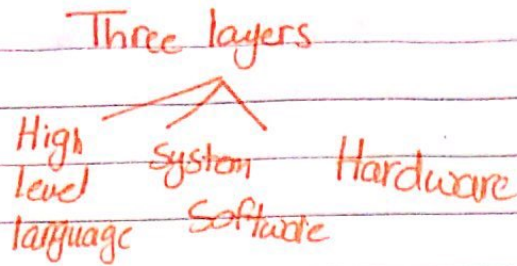 Three layers
High level language
System Software
Hardware